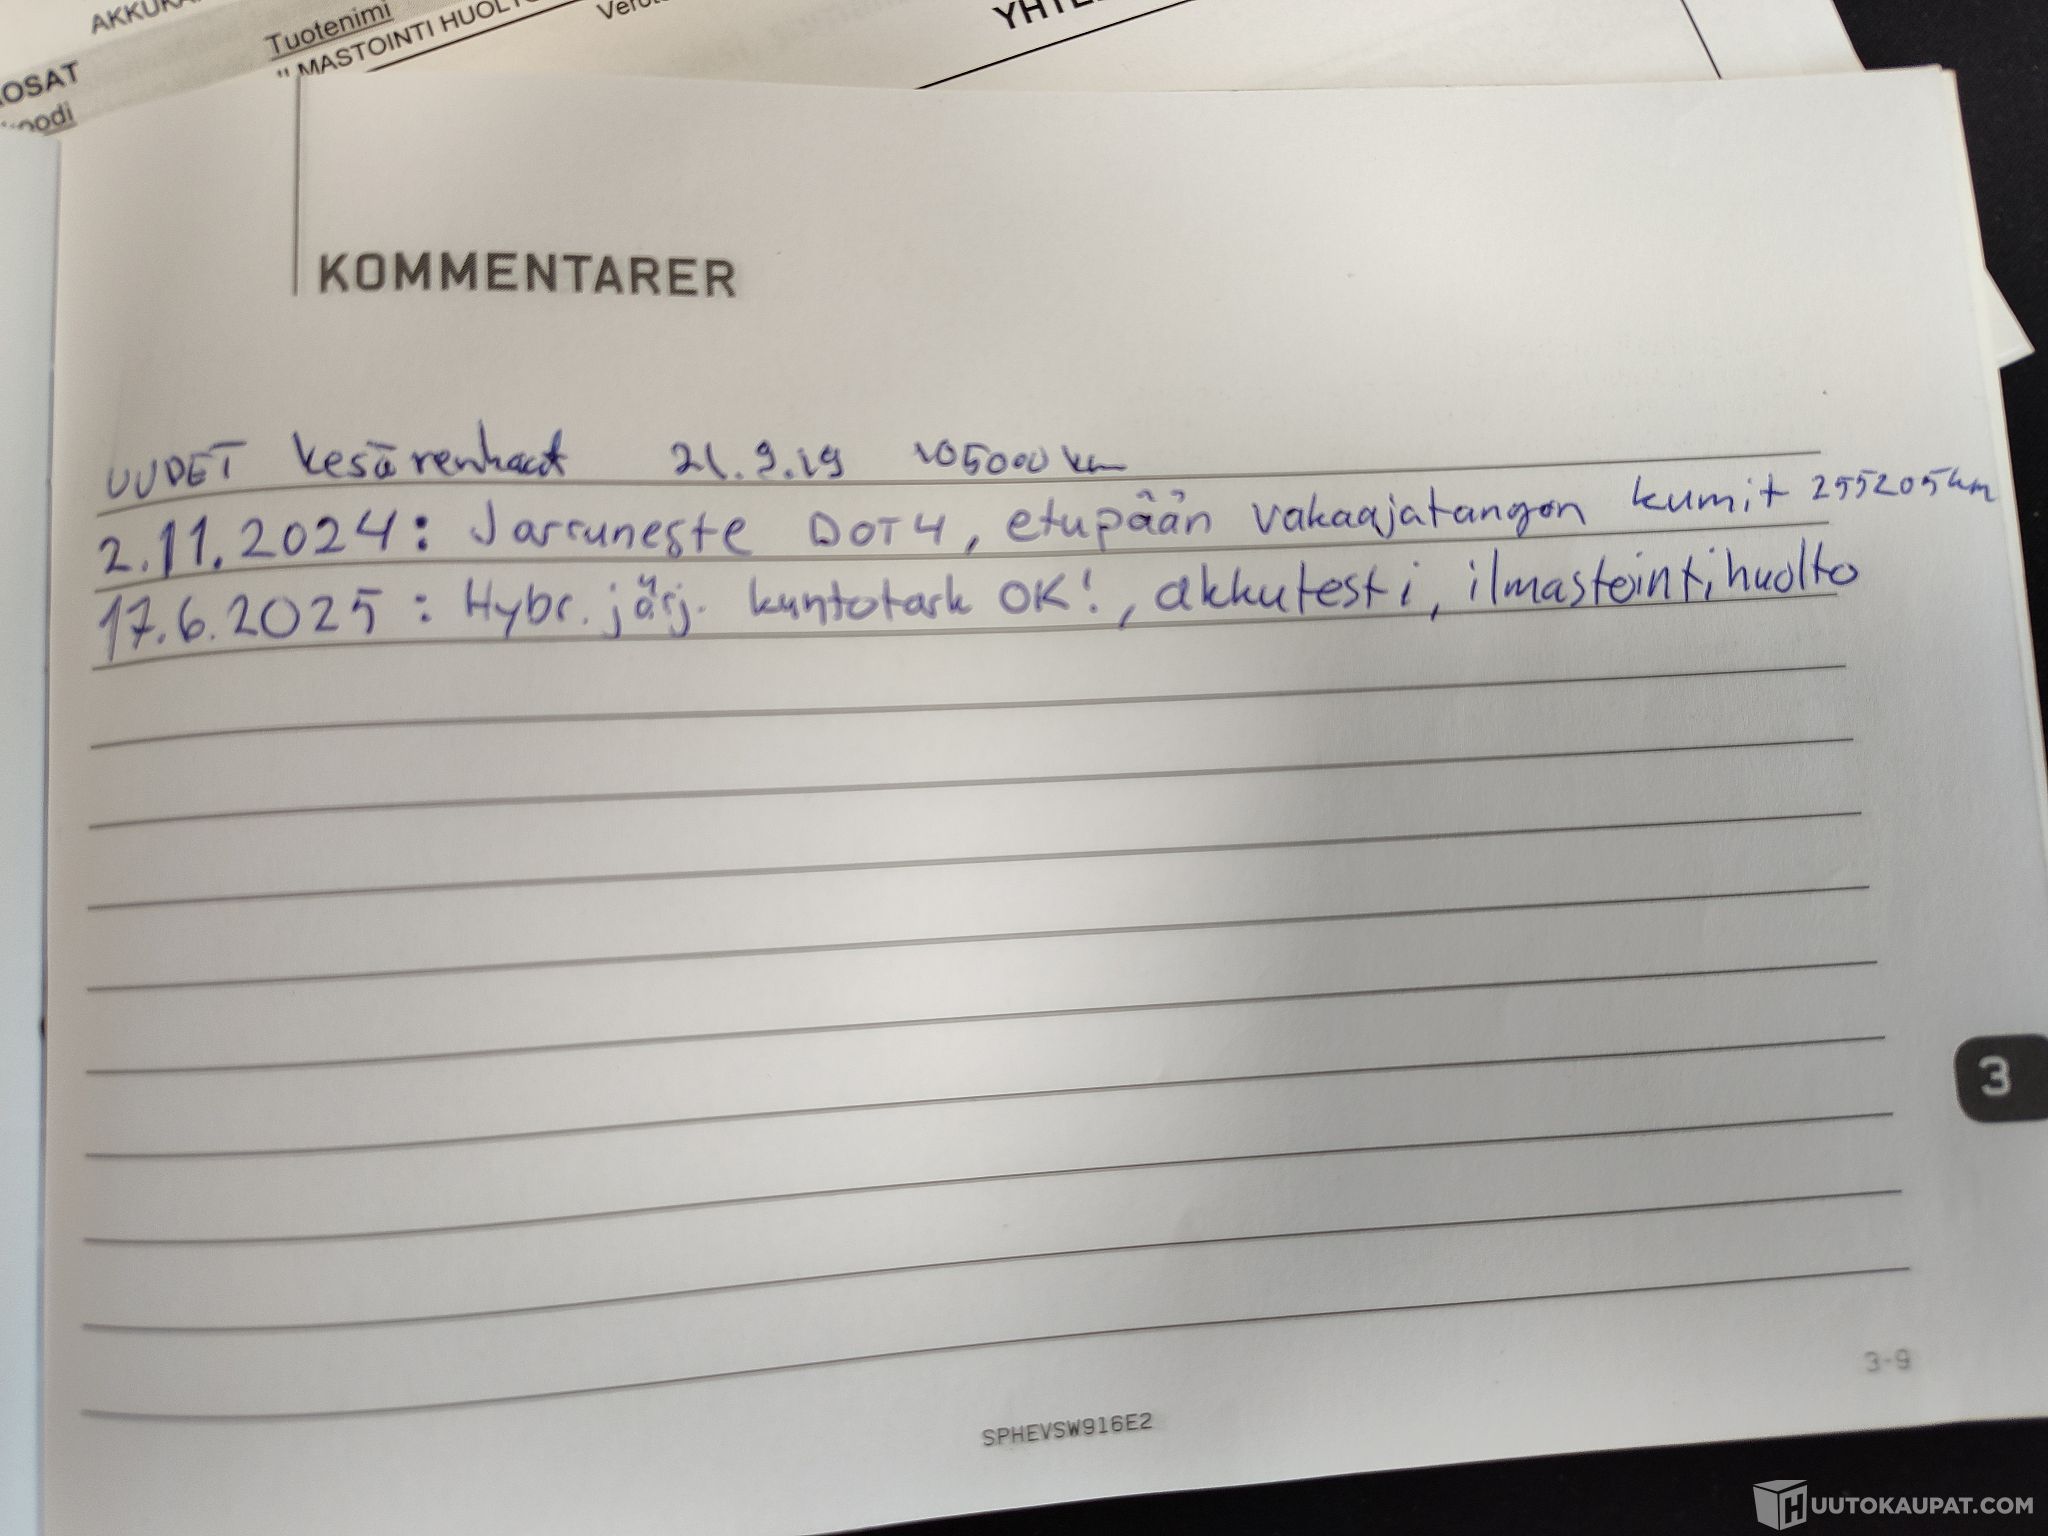 Tuotenimi
MASTOINTI HUOLTO
OSAT
KOMMENTARER
UUDET kesärenkaat 21.9.19 105000 km
2.11.2024: Jarruneste DOT4, etupään vakaajatangon kumit 255205km
17.6.2025: Hybr. järj. kuntotark OK!, akkutesti, ilmastointihuolto
3
3-9
SPHEVSW916E2
HUUTOKAUPAT.COM